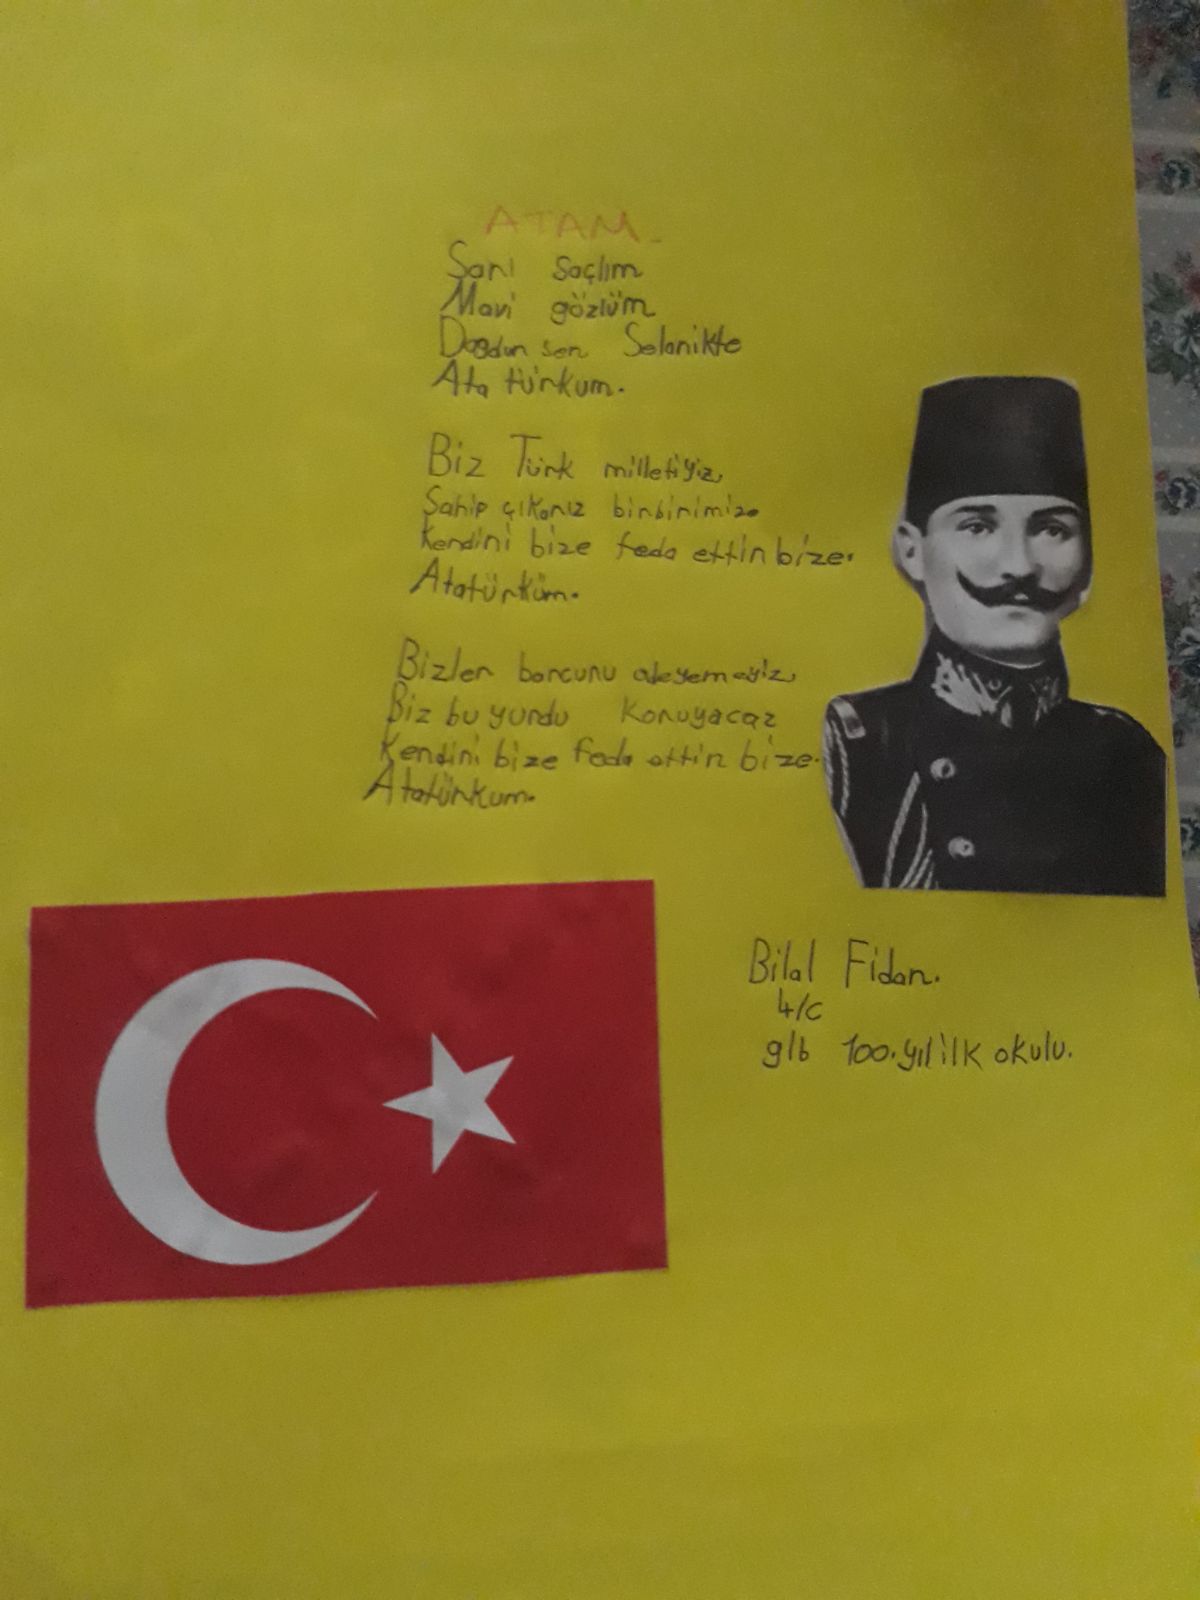 ATAM
Sarı saçlım
Mavi gözlüm
Doğdun sen Selanikte
Ata türkum.
Biz Türk milletiyiz
Sahip çıkarız birbirimize
Kendini bize feda ettin bize.
Atatürküm.
Bizler borcunu ödeyemeyiz
Biz bu yurdu koruyacaz
Kendini bize feda ettin bize.
Atatürkum.
Bilal Fidan.
4/C
glb 100.yıl ilk okulu.